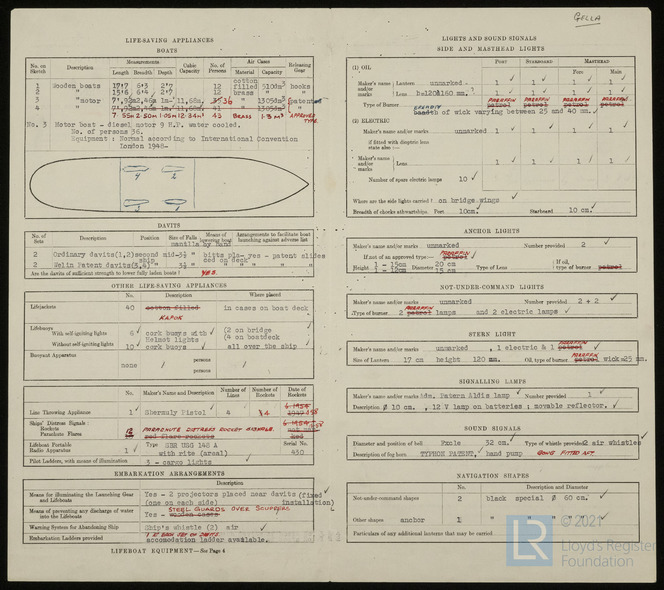 GELLA
LIFE-SAVING APPLIANCES
BOATS
No. on Sketch Description Measurements Length Breadth Depth Cubic Capacity No. of Persons Air Cases Material Capacity Releasing Gear
1 Wooden boats 17'7 6'3 2'7 12 cotton filled 510dm³ hooks
2 " 15'6 6'4 2'7 12 brass " "
3 "motor 36 1305dm³ Patent
4 " 41 1305dm³
7.55m 2.50m 1.05m 12.34m³ 45 BRASS 1.3m³ APPROVED TYPE
No. 3 Motor boat - diesel motor 9 H.P. water cooled.
No. of persons 36.
Equipment : Normal according to International Convention
London 1948-
4 2
3 1
DAVITS
No. of Sets Description Position Size of Falls Means of lowering boat Arrangements to facilitate boat launching against adverse list
manilla by hand
2 Ordinary davits(1,2)second mid- bitts pla- yes - patent slides
ship ced on deck
2 Welin Patent davits(3,4)" 3½ " " " "
Are the davits of sufficient strength to lower fully laden boats? YES.
OTHER LIFE-SAVING APPLIANCES
No. Description Where placed
Lifejackets 40 cotton filled in cases on boat deck
KAPOK
Lifebuoys
With self-igniting lights 6 cork buoys with (2 on bridge
Helmot lights (4 on boatdeck
Without self-igniting lights 10 cork buoys all over the ship
Buoyant Apparatus none / persons /
persons
No. Maker's Name and Description Number of Lines Number of Rockets Date of Rockets
Line Throwing Appliance 1 Shermuly Pistol 4 4
Ships' Distress Signals :
Rockets
Parachute Flares 12 PARACHUTE DISTRESS ROCKET SIGNALS.
red flare rockets
Lifeboat Portable Radio Apparatus 1 Type SER USG 148 A Serial No.
with rite (areal) 430
Pilot Ladders, with means of illumination 3 - cargo lights
EMBARKATION ARRANGEMENTS
Means for illuminating the Launching Gear and Lifeboats Yes - 2 projectors placed near davits (fixed
(one on each side) installation)
Means of preventing any discharge of water into the Lifeboats STEEL GUARDS OVER SCUPPERS
Yes - wooden cases
Warning System for Abandoning Ship Ship's whistle (2) air
1 AT EACH SET OF DAVITS
Embarkation Ladders provided accomodation ladder available.
LIFEBOAT EQUIPMENT—See Page 4
LIGHTS AND SOUND SIGNALS
SIDE AND MASTHEAD LIGHTS
PORT STARBOARD MASTHEAD
Fore Main
(1) OIL
Maker's name and/or marks Lantern unmarked 1 1 1 1
Lens h=120&160 mm. 1 1 1 1
PARAFFIN PARAFFIN PARAFFIN PARAFFIN
Type of Burner petrol petrol petrol petrol
breadth of wick varying between 25 and 40 mm.
(2) ELECTRIC
Maker's name and/or marks unmarked 1 1 1 1
if fitted with dioptric lens state also :—
Maker's name and/or marks Lens 1 1 1 1
Number of spare electric lamps 10
Where are the side lights carried? on bridge wings
Breadth of chocks athwartships. Port 10cm. Starboard 10 cm.
ANCHOR LIGHTS
Maker's name and/or marks unmarked Number provided 2
If not of an approved type:—
PARAFFIN petrol
Height 1 - 15cm Diameter 20 cm Type of Lens If oil, type of burner petrol
1 - 12cm 15 cm
NOT-UNDER-COMMAND LIGHTS
Maker's name and/or marks unmarked Number provided 2 + 2
PARAFFIN
Type of burner 2 petrol lamps and 2 electric lamps
STERN LIGHT
PARAFFIN
Maker's name and/or marks unmarked , 1 electric & 1 petrol
PARAFFIN
Size of Lantern 17 cm height 120 mm. Oil, type of burner petrol wick=25 mm.
SIGNALLING LAMPS
Maker's name and/or marks Adm. Patern Aldis lamp Number provided 1
Description Ø 10 cm. , 12 V lamp on batteries ; movable reflector.
SOUND SIGNALS
Diameter and position of bell 32 cm. Type of whistle provided 2 air whistles
Description of fog horn TYPHON PATENT, hand pump GONG FITTED AFT.
NAVIGATION SHAPES
No. Description and Diameter
Not-under-command shapes 2 black special Ø 60 cm.
Other shapes anchor 1 " " "
Particulars of any additional lanterns that may be carried
© 2021
LR
Lloyd's Register
Foundation